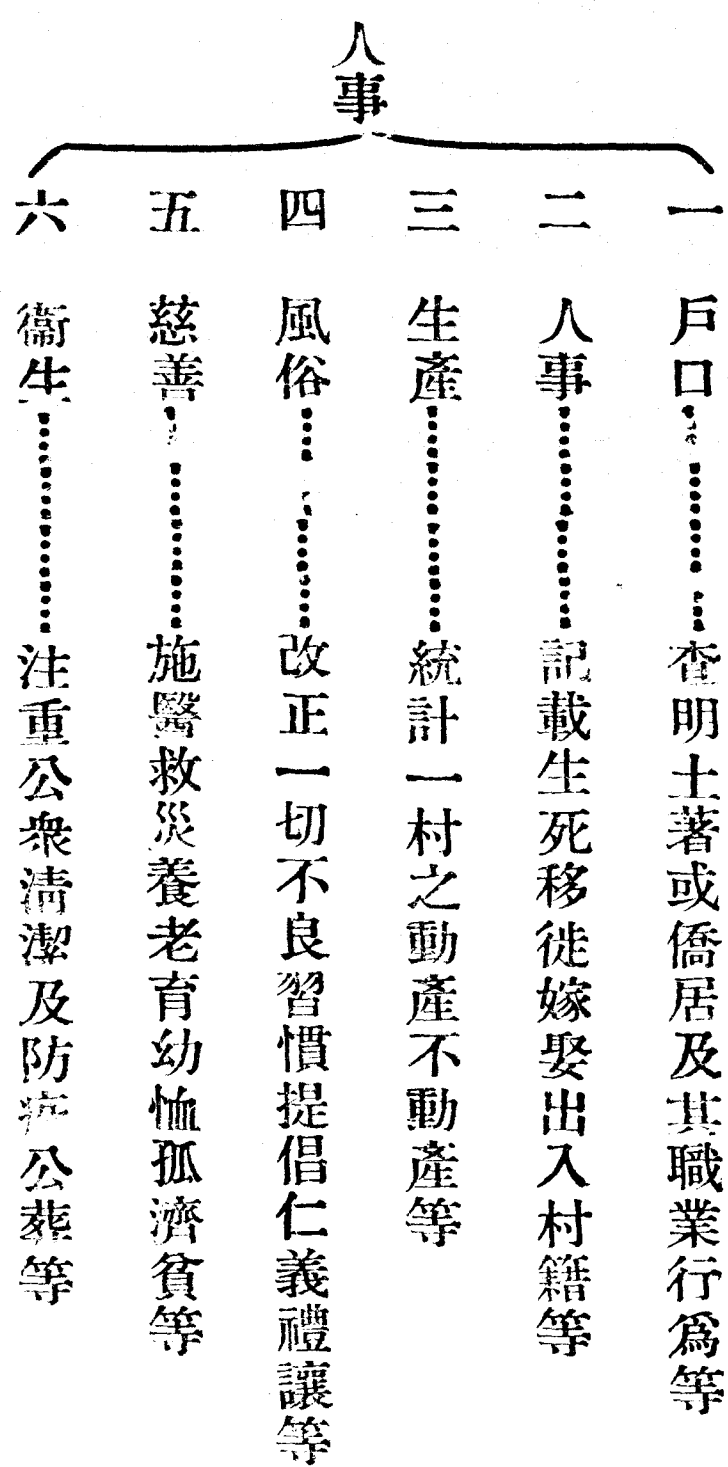 人事
一　戶口…………查明土著或僑居及其職業行爲等
二　人事…………記載生死移徙嫁娶出入村籍等
三　生產…………統計一村之動產不動產等
四　風俗…………改正一切不良習慣提倡仁義禮讓等
五　慈善…………施醫救災養老育幼恤孤濟貧等
六　衞生…………注重公衆淸潔及防疫公葬等